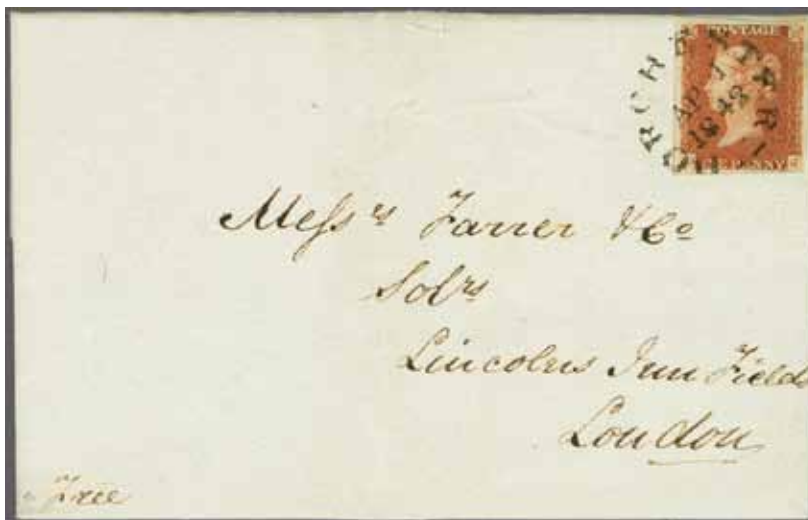 POSTAGE
DORCHESTER
AP
PENNY
Messrs Farrer & Co
Solrs
Lincolns Inn Fields
London
Free